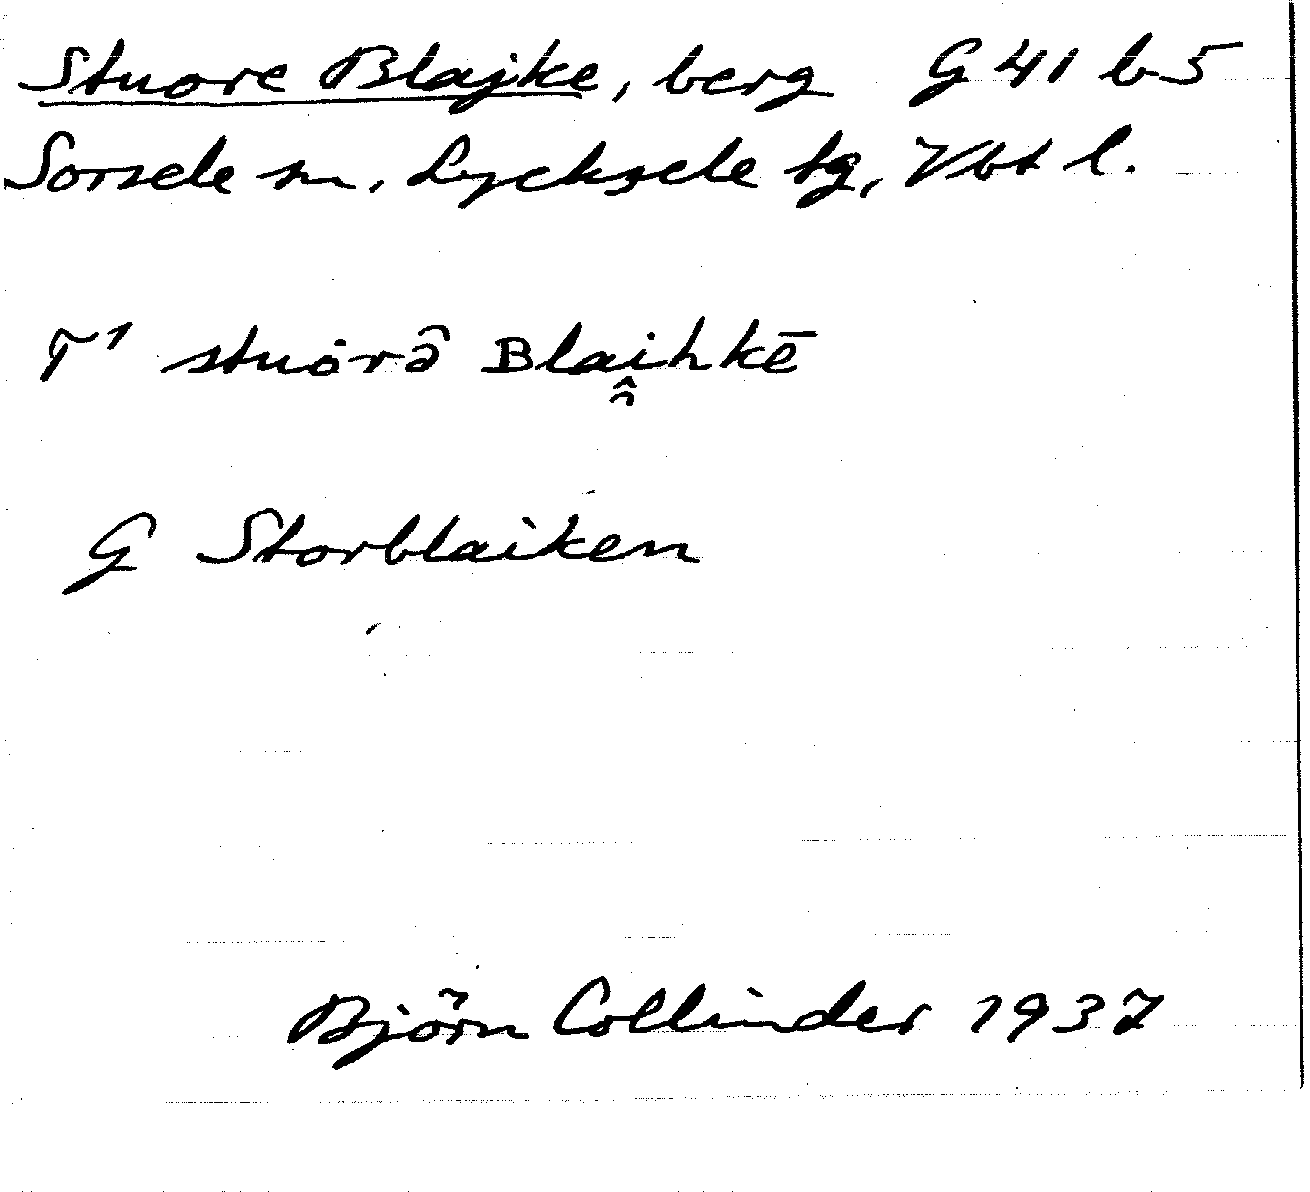 Stuore Blajke, berg G 41 b 5
Sorsele sn, Lycksele tg, Vbt l.
T¹ stuȯrə̂ Blai̭hkē
G Storblaiken
Björn Collinder 1937